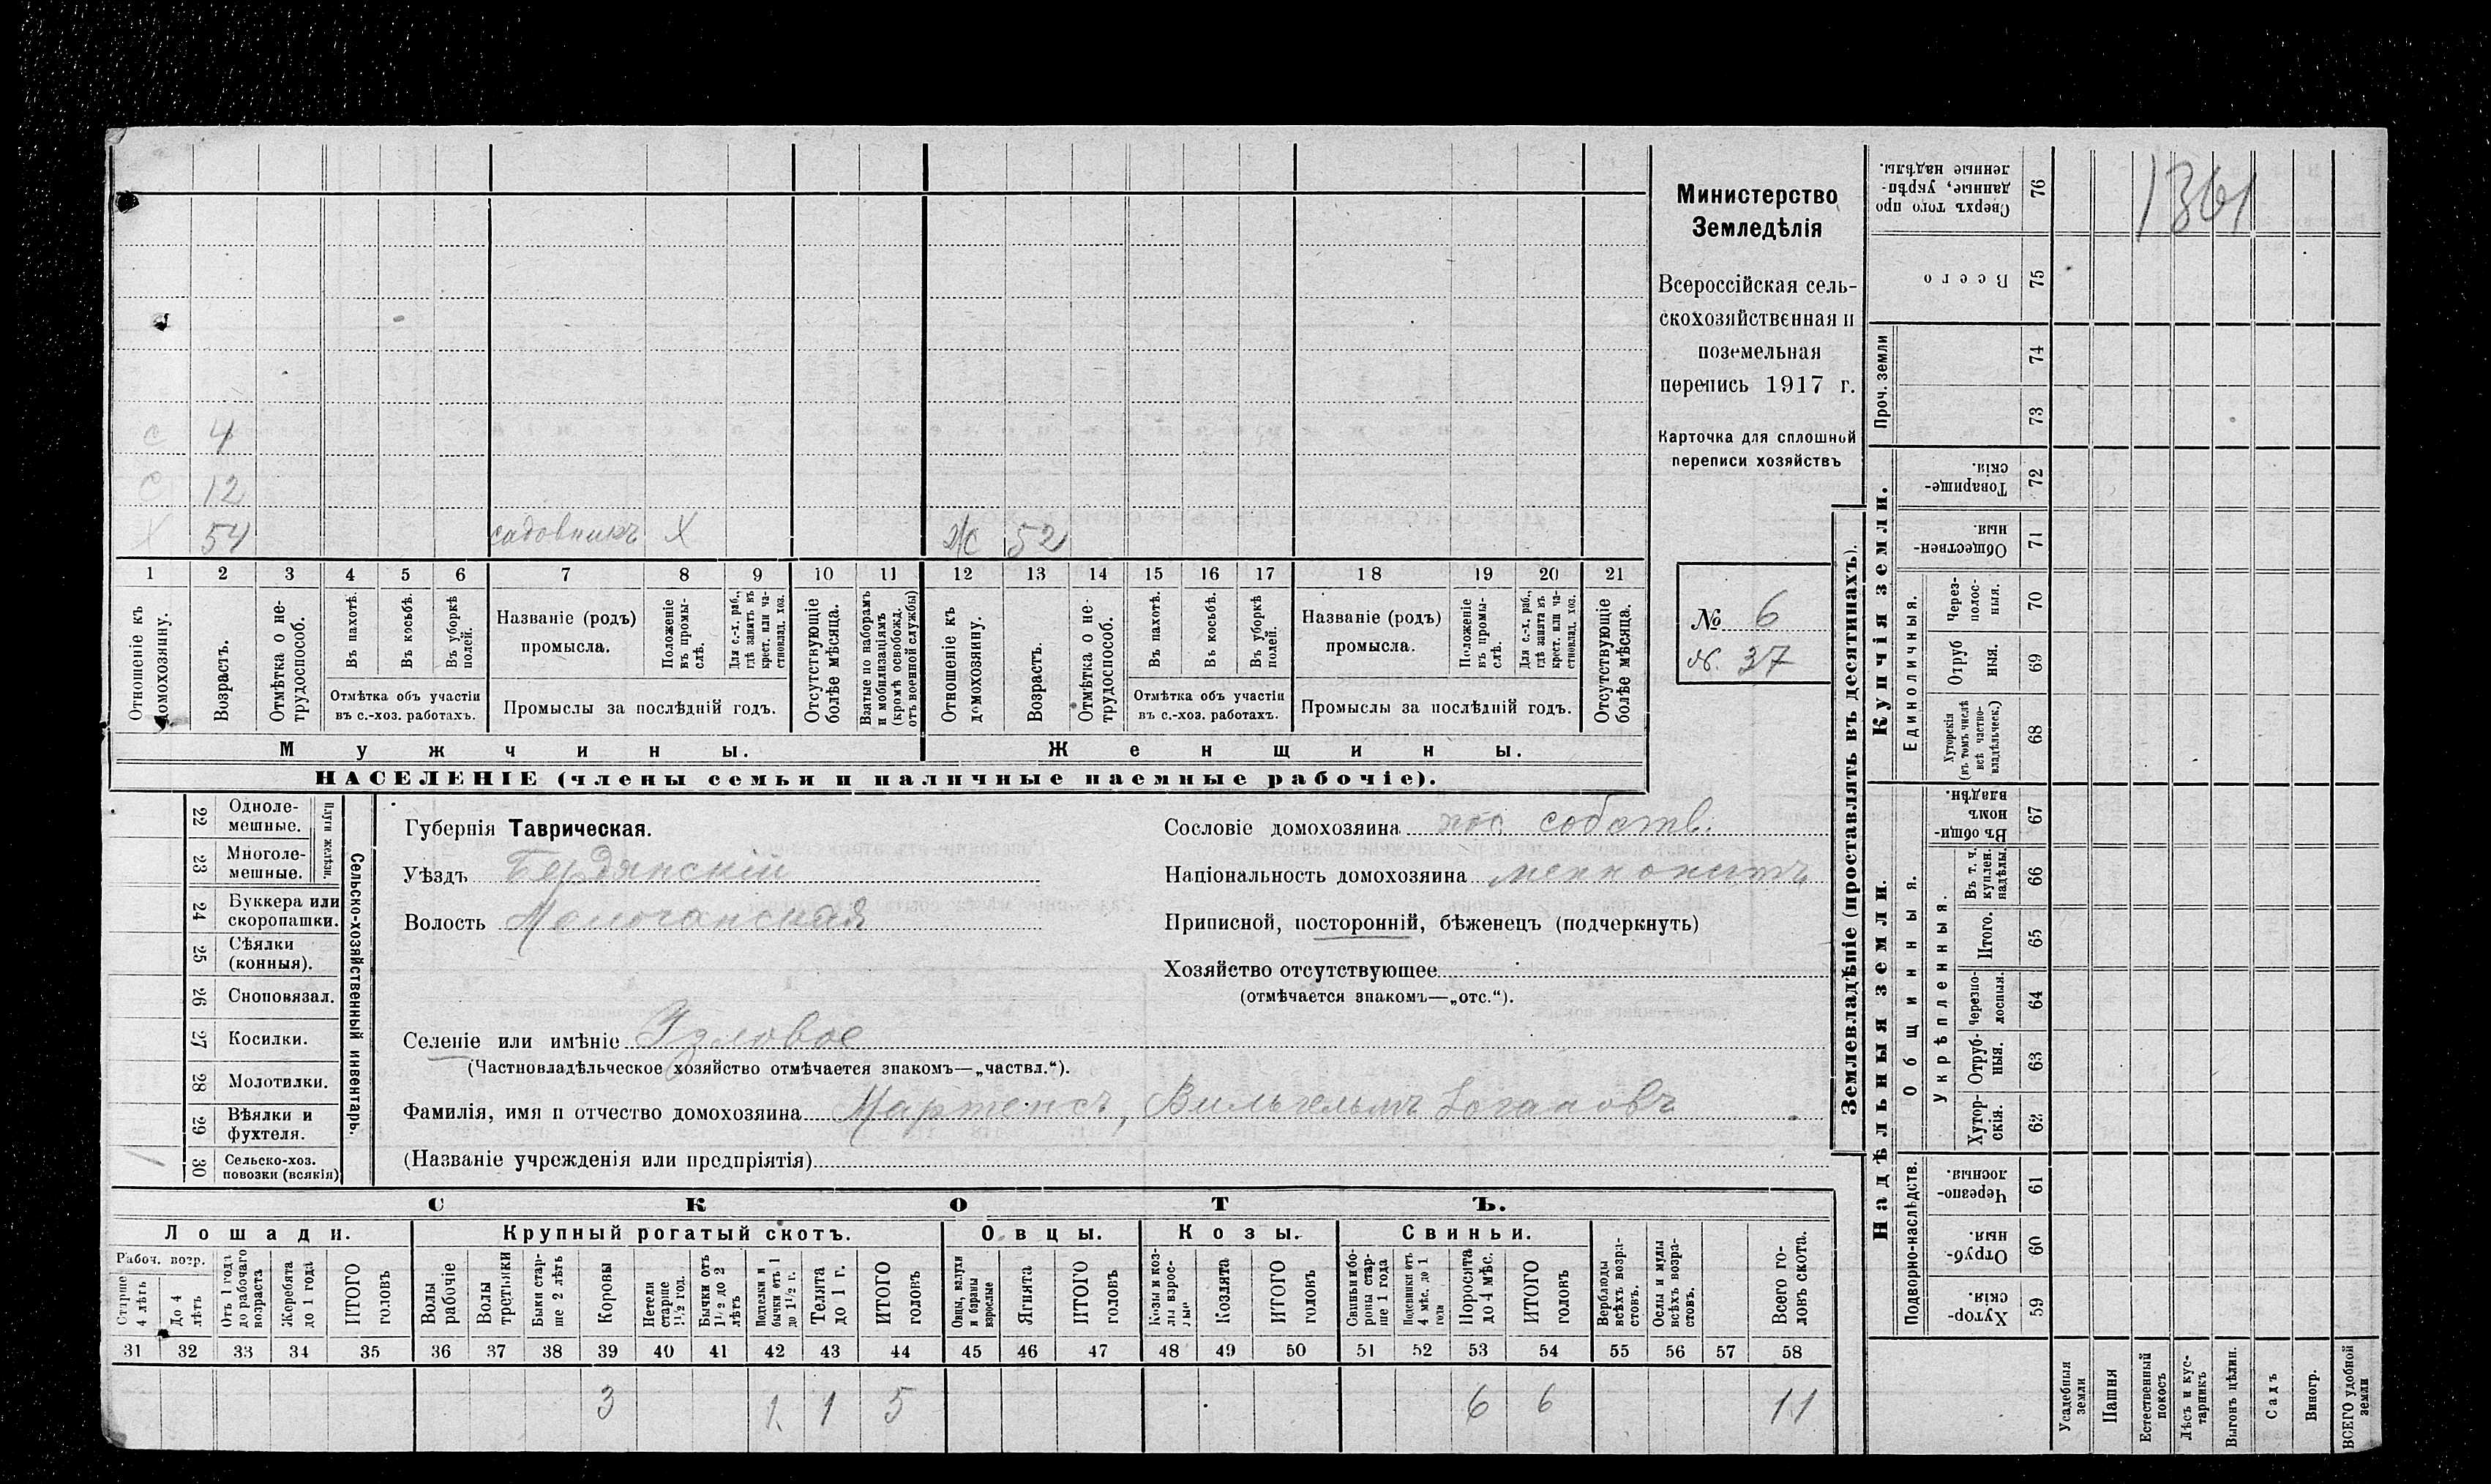 1361
с 4
с 12
X 54 садовникъ X Ж 52
1 2 3 4 5 6 7 8 9 10 11 12 13 14 15 16 17 18 19 20 21
Отношеніе къ домохозяину.
Возрастъ.
Отмѣтка о не-трудоспособ.
Въ пахотѣ.
Въ косьбѣ.
Въ уборкѣ полей.
Отмѣтка объ участіи
въ с.-хоз. работахъ.
Названіе (родъ)
промысла.
Положеніе въ промы-слѣ.
Для с.-х. раб., гдѣ занятъ въ крест. или ча-стновлад. хоз.
Промыслы за послѣдній годъ.
Отсутствующіе болѣе мѣсяца.
Взятые по наборамъ и мобилизаціямъ (кромѣ освобожд. отъ военной службы)
Отношеніе къ домохозяину.
Возрастъ.
Отмѣтка о не-трудоспособ.
Въ пахотѣ.
Въ косьбѣ.
Въ уборкѣ полей.
Отмѣтка объ участіи
въ с.-хоз. работахъ.
Названіе (родъ)
промысла.
Положеніе въ промы-слѣ.
Для с.-х. раб., гдѣ занята въ крест. или ча-стновлад. хоз.
Промыслы за послѣдній годъ.
Отсутствующіе болѣе мѣсяца.
Мужчины. Женщины.
НАСЕЛЕНІЕ (члены семьи и наличные наемные рабочіе).
Министерство
Земледѣлія
Всероссійская сель-
скохозяйственная и
поземельная
перепись 1917 г.
Карточка для сплошной
переписи хозяйствъ
№ 6
№. 37
22 Одноле-мешные.
23 Многоле-мешные.
Плуги желѣзн.
24 Буккера или скоропашки.
25 Сѣялки (конныя).
26 Сноповязал.
27 Косилки.
28 Молотилки.
29 Вѣялки и фухтеля.
1 30 Сельско-хоз. повозки (всякія)
Сельско-хозяйственный инвентарь.
Губернія Таврическая.
Уѣздъ Бердянскій
Волость Молочанская
Селеніе или имѣніе Узловое
(Частновладѣльческое хозяйство отмѣчается знакомъ—„частвл.“).
Фамилія, имя и отчество домохозяина Мартенсъ, Вильгельмъ Іогановъ
(Названіе учрежденія или предпріятія)
Сословіе домохозяина пос. собств.
Національность домохозяина меннонитъ
Приписной, посторонній, бѣженецъ (подчеркнуть)
Хозяйство отсутствующее
(отмѣчается знакомъ—„отс.“).
СКОТЪ.
Лошади. Крупный рогатый скотъ. Овцы. Козы. Свиньи.
Рабоч. возр.
Старше 4 лѣтъ
До 4 лѣтъ
Отъ 1 года до рабочаго возраста
Жеребята до 1 года
ИТОГО головъ
Волы рабочіе
Волы третьяки
Быки стар-ше 2 лѣтъ
Коровы
Нетели старше 1½ год.
Бычки отъ 1½ до 2 лѣтъ
Подтелки и бычки отъ 1 до 1½ г.
Телята до 1 г.
ИТОГО головъ
Овцы, валухи и бараны взрослые
Ягнята
ИТОГО головъ
Козы и коз-лы взрос-лые
Козлята
ИТОГО головъ
Свиньи и бо-ровы стар-ше 1 года
Подсвинки отъ 4 мѣс. до 1 года
Поросята до 4 мѣс.
ИТОГО головъ
Верблюды всѣхъ возра-стовъ.
Ослы и мулы всѣхъ возра-стовъ.
Всего го-ловъ скота.
31 32 33 34 35 36 37 38 39 40 41 42 43 44 45 46 47 48 49 50 51 52 53 54 55 56 57 58
3 1 1 5 6 6 11
Землевладѣніе (проставлять въ десятинахъ).
Купчія земли.
Надѣльныя земли.
Сверхъ того про-данные, укрѣп-ленные надѣлы. 76
Всего 75
Проч. земли 74
73
Товарище-скія. 72
Обществен-ныя. 71
Единоличныя.
Через-полос-ныя. 70
Отруб-ныя. 69
Хуторскія (въ томъ числѣ всѣ частно-владѣльческ.) 68
Общинныя.
Въ общин-номъ владѣн. 67
Укрѣпленныя.
Въ т. ч. куплен. надѣлы. 66
Итого. 65
Черезпо-лосныя. 64
Отруб-ныя. 63
Хутор-скія. 62
Подворно-наслѣдств.
Черезпо-лосныя. 61
Отруб-ныя. 60
Хутор-скія. 59
Усадебныя земли
Пашня
Естественный покосъ
Лѣсъ и кус-тарникъ
Выгонъ цѣлин.
Садъ
Виногр.
ВСЕГО удобной земли